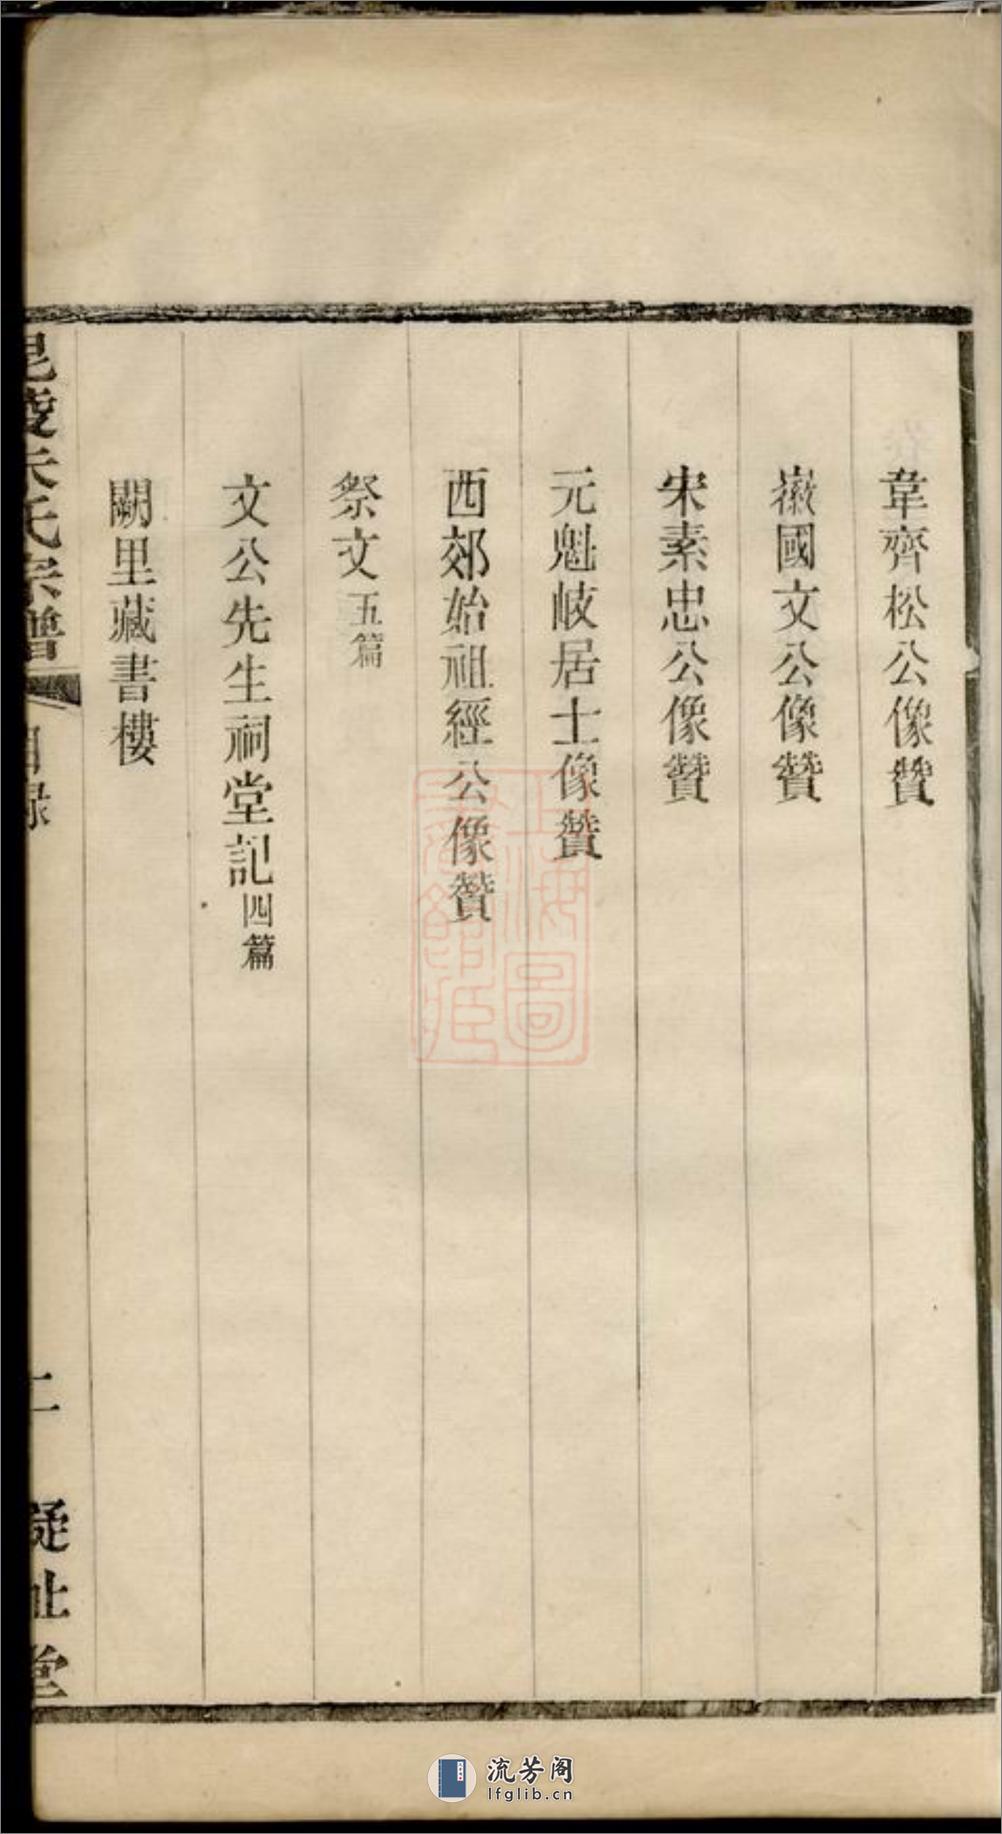 韋齊松公像贊
徽國文公像贊
宋素忠公像贊
元魁岐居士像贊
西郊始祖經公像贊
祭文五篇
文公先生祠堂記四篇
闕里藏書樓
毘陵朱氏宗譜
目錄
二
凝祉堂
上海圖書館藏
流芳阁
lfglib.cn